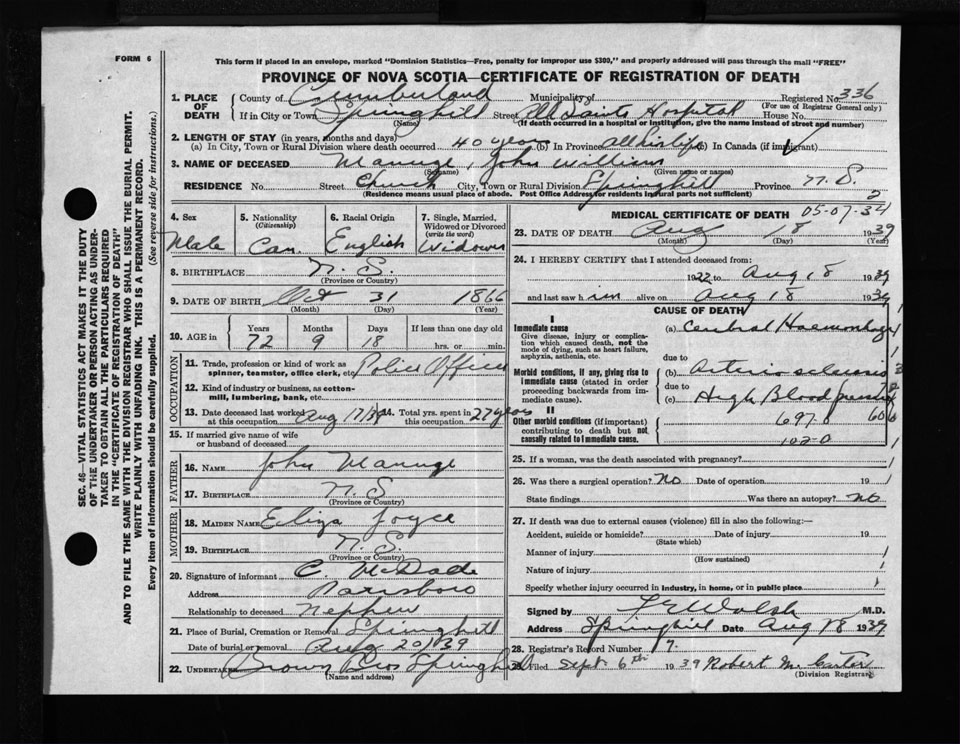 FORM 6
This form if placed in an envelope, marked "Dominion Statistics—Free, penalty for improper use $300," and properly addressed will pass through the mail "FREE"
PROVINCE OF NOVA SCOTIA—CERTIFICATE OF REGISTRATION OF DEATH
1. PLACE OF DEATH County of Cumberland Municipality of Registered No. 336
(For use of Registrar General only)
If in City or Town Springhill Street All Saints Hospital House No.
(Name) (If death occurred in a hospital or institution, give the name instead of street and number)
2. LENGTH OF STAY (in years, months and days)
(a) In City, Town or Rural Division where death occurred 40 years (b) In Province All his life (c) In Canada (if immigrant)
3. NAME OF DECEASED Mauuge, John William
(Surname) (Given name or names)
RESIDENCE No. Street Church City, Town or Rural Division Springhill Province N.S.
(Residence means usual place of abode. Post Office Address for residents in Rural parts not sufficient) 2
4. Sex Male
5. Nationality (Citizenship) Can.
6. Racial Origin English
7. Single, Married, Widowed or Divorced (write the word) Widower
8. BIRTHPLACE N.S.
(Province or Country)
9. DATE OF BIRTH Oct 31 1866
(Month) (Day) (Year)
10. AGE in Years 72 Months 9 Days 18 If less than one day old hrs. or min.
OCCUPATION
11. Trade, profession or kind of work as spinner, teamster, office clerk, etc. Police Officer
12. Kind of industry or business, as cotton-mill, lumbering, bank, etc.
13. Date deceased last worked at this occupation Aug 17/39 14. Total yrs. spent in this occupation 27 years
15. If married give name of wife or husband of deceased
FATHER
16. NAME John Mauuge
17. BIRTHPLACE N.S.
(Province or Country)
MOTHER
18. MAIDEN NAME Eliza Joyce
19. BIRTHPLACE N.S.
(Province or Country)
20. Signature of informant C. McDade
Address Parrsboro
Relationship to deceased Nephew
21. Place of Burial, Cremation or Removal Springhill
Date of burial or removal Aug 20/39
22. Undertaker Brown Bros Springhill
(Name and address)
MEDICAL CERTIFICATE OF DEATH 05-07-34
23. DATE OF DEATH Aug 18 1939
(Month) (Day) (Year)
24. I HEREBY CERTIFY that I attended deceased from:
1922 to Aug 18 1939
and last saw him alive on Aug 18 1939
CAUSE OF DEATH
I
Immediate cause
Give disease, injury or complication which caused death, not the mode of dying, such as heart failure, asphyxia, asthenia, etc.
(a) Cerebral Haemorrhage
due to
Morbid conditions, if any, giving rise to immediate cause (stated in order proceeding backwards from immediate cause).
(b) Arterio sclerosis
due to
(c) High Blood pressure
II
Other morbid conditions (if important) contributing to death but not causally related to immediate cause.
697.8
102-0
25. If a woman, was the death associated with pregnancy?
26. Was there a surgical operation? No Date of operation 19
State findings Was there an autopsy? No
27. If death was due to external causes (violence) fill in also the following:—
Accident, suicide or homicide? Date of injury 19
(State which)
Manner of injury
(How sustained)
Nature of injury
Specify whether injury occurred in industry, in home, or in public place
Signed by F E Walsh M.D.
Address Springhill Date Aug 18 1939
28. Registrar's Record Number 7.
29. Filed Sept 6th 1939 Robert M. Carter
(Division Registrar)
SEC. 46—VITAL STATISTICS ACT MAKES IT THE DUTY
OF THE UNDERTAKER OR PERSON ACTING AS UNDER-
TAKER TO OBTAIN ALL THE PARTICULARS REQUIRED
IN THE "CERTIFICATE OF REGISTRATION OF DEATH"
AND TO FILE THE SAME WITH THE DIVISION REGISTRAR WHO SHALL ISSUE THE BURIAL PERMIT.
WRITE PLAINLY WITH UNFADING INK. THIS IS A PERMANENT RECORD.
Every item of information should be carefully supplied. (See reverse side for instructions.)